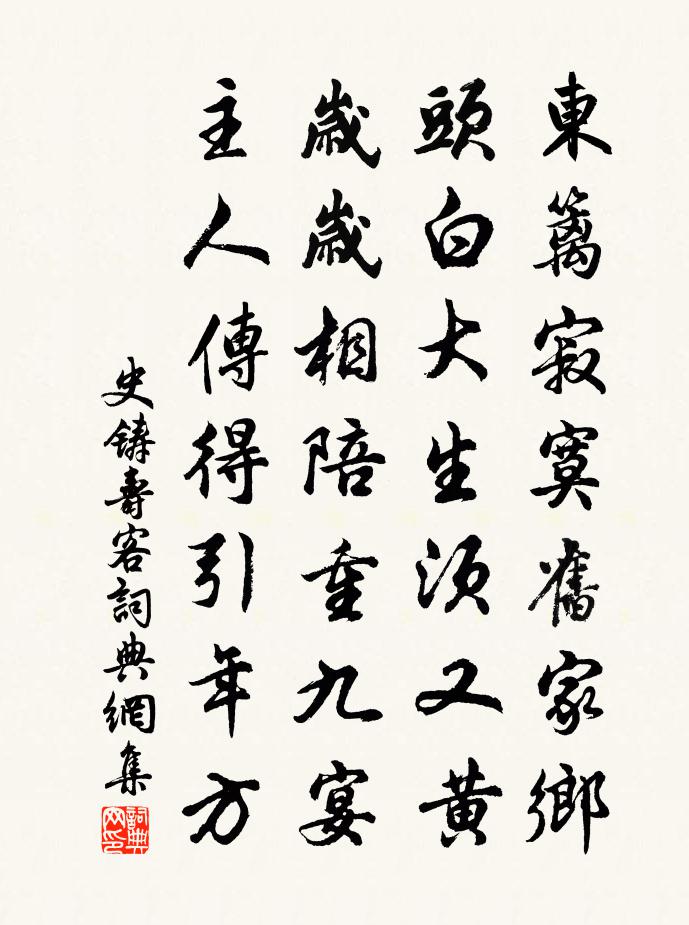 東籬寂寞舊家鄉
頭白大生須又黄
歲歲相陪重九宴
主人傳得引年方
史鑄壽客詞典網集
詞典网印